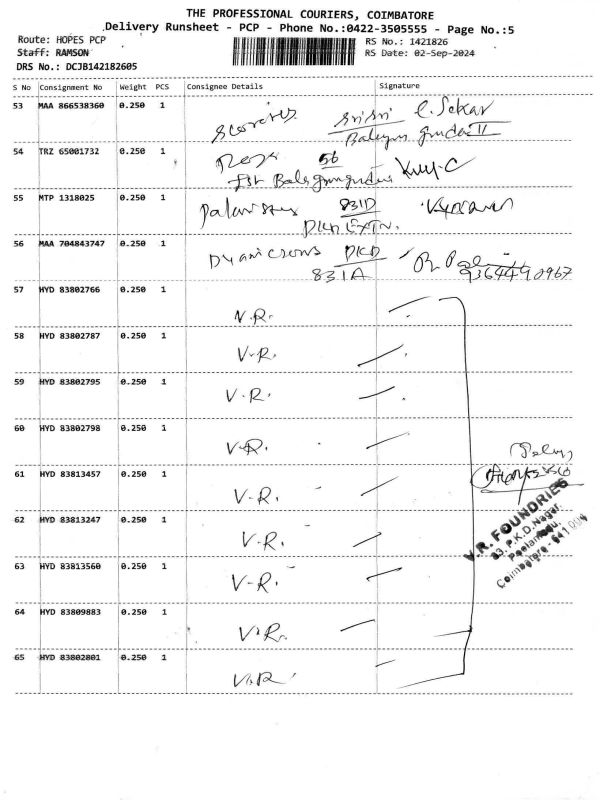 THE PROFESSIONAL COURIERS, COIMBATORE
Delivery Runsheet - PCP - Phone No.:0422-3505555 - Page No.:5
Route: HOPES PCP
RS No.: 1421826
Staff: RAMSON
RS Date: 02-Sep-2024
DRS No.: DCJB142182605
S No Consignment No Weight PCS Consignee Details Signature
53 MAA 866538360 0.250 1
54 TRZ 65001732 0.250 1
56
55 MTP 1318025 0.250 1
831D
56 MAA 704843747 0.250 1
PKD
831A
57 HYD 83802766 0.250 1
V.R.
58 HYD 83802787 0.250 1
V-R.
59 HYD 83802795 0.250 1
V.R.
60 HYD 83802798 0.250 1
V-R.
61 HYD 83813457 0.250 1
V-R.
62 HYD 83813247 0.250 1
V.R.
63 HYD 83813560 0.250 1
V-R.
64 HYD 83809883 0.250 1
V.R.
65 HYD 83802801 0.250 1
V.R.
V.R. FOUNDRIES
83, P.K.D. Nagar,
Peelamedu,
Coimbatore - 641 004